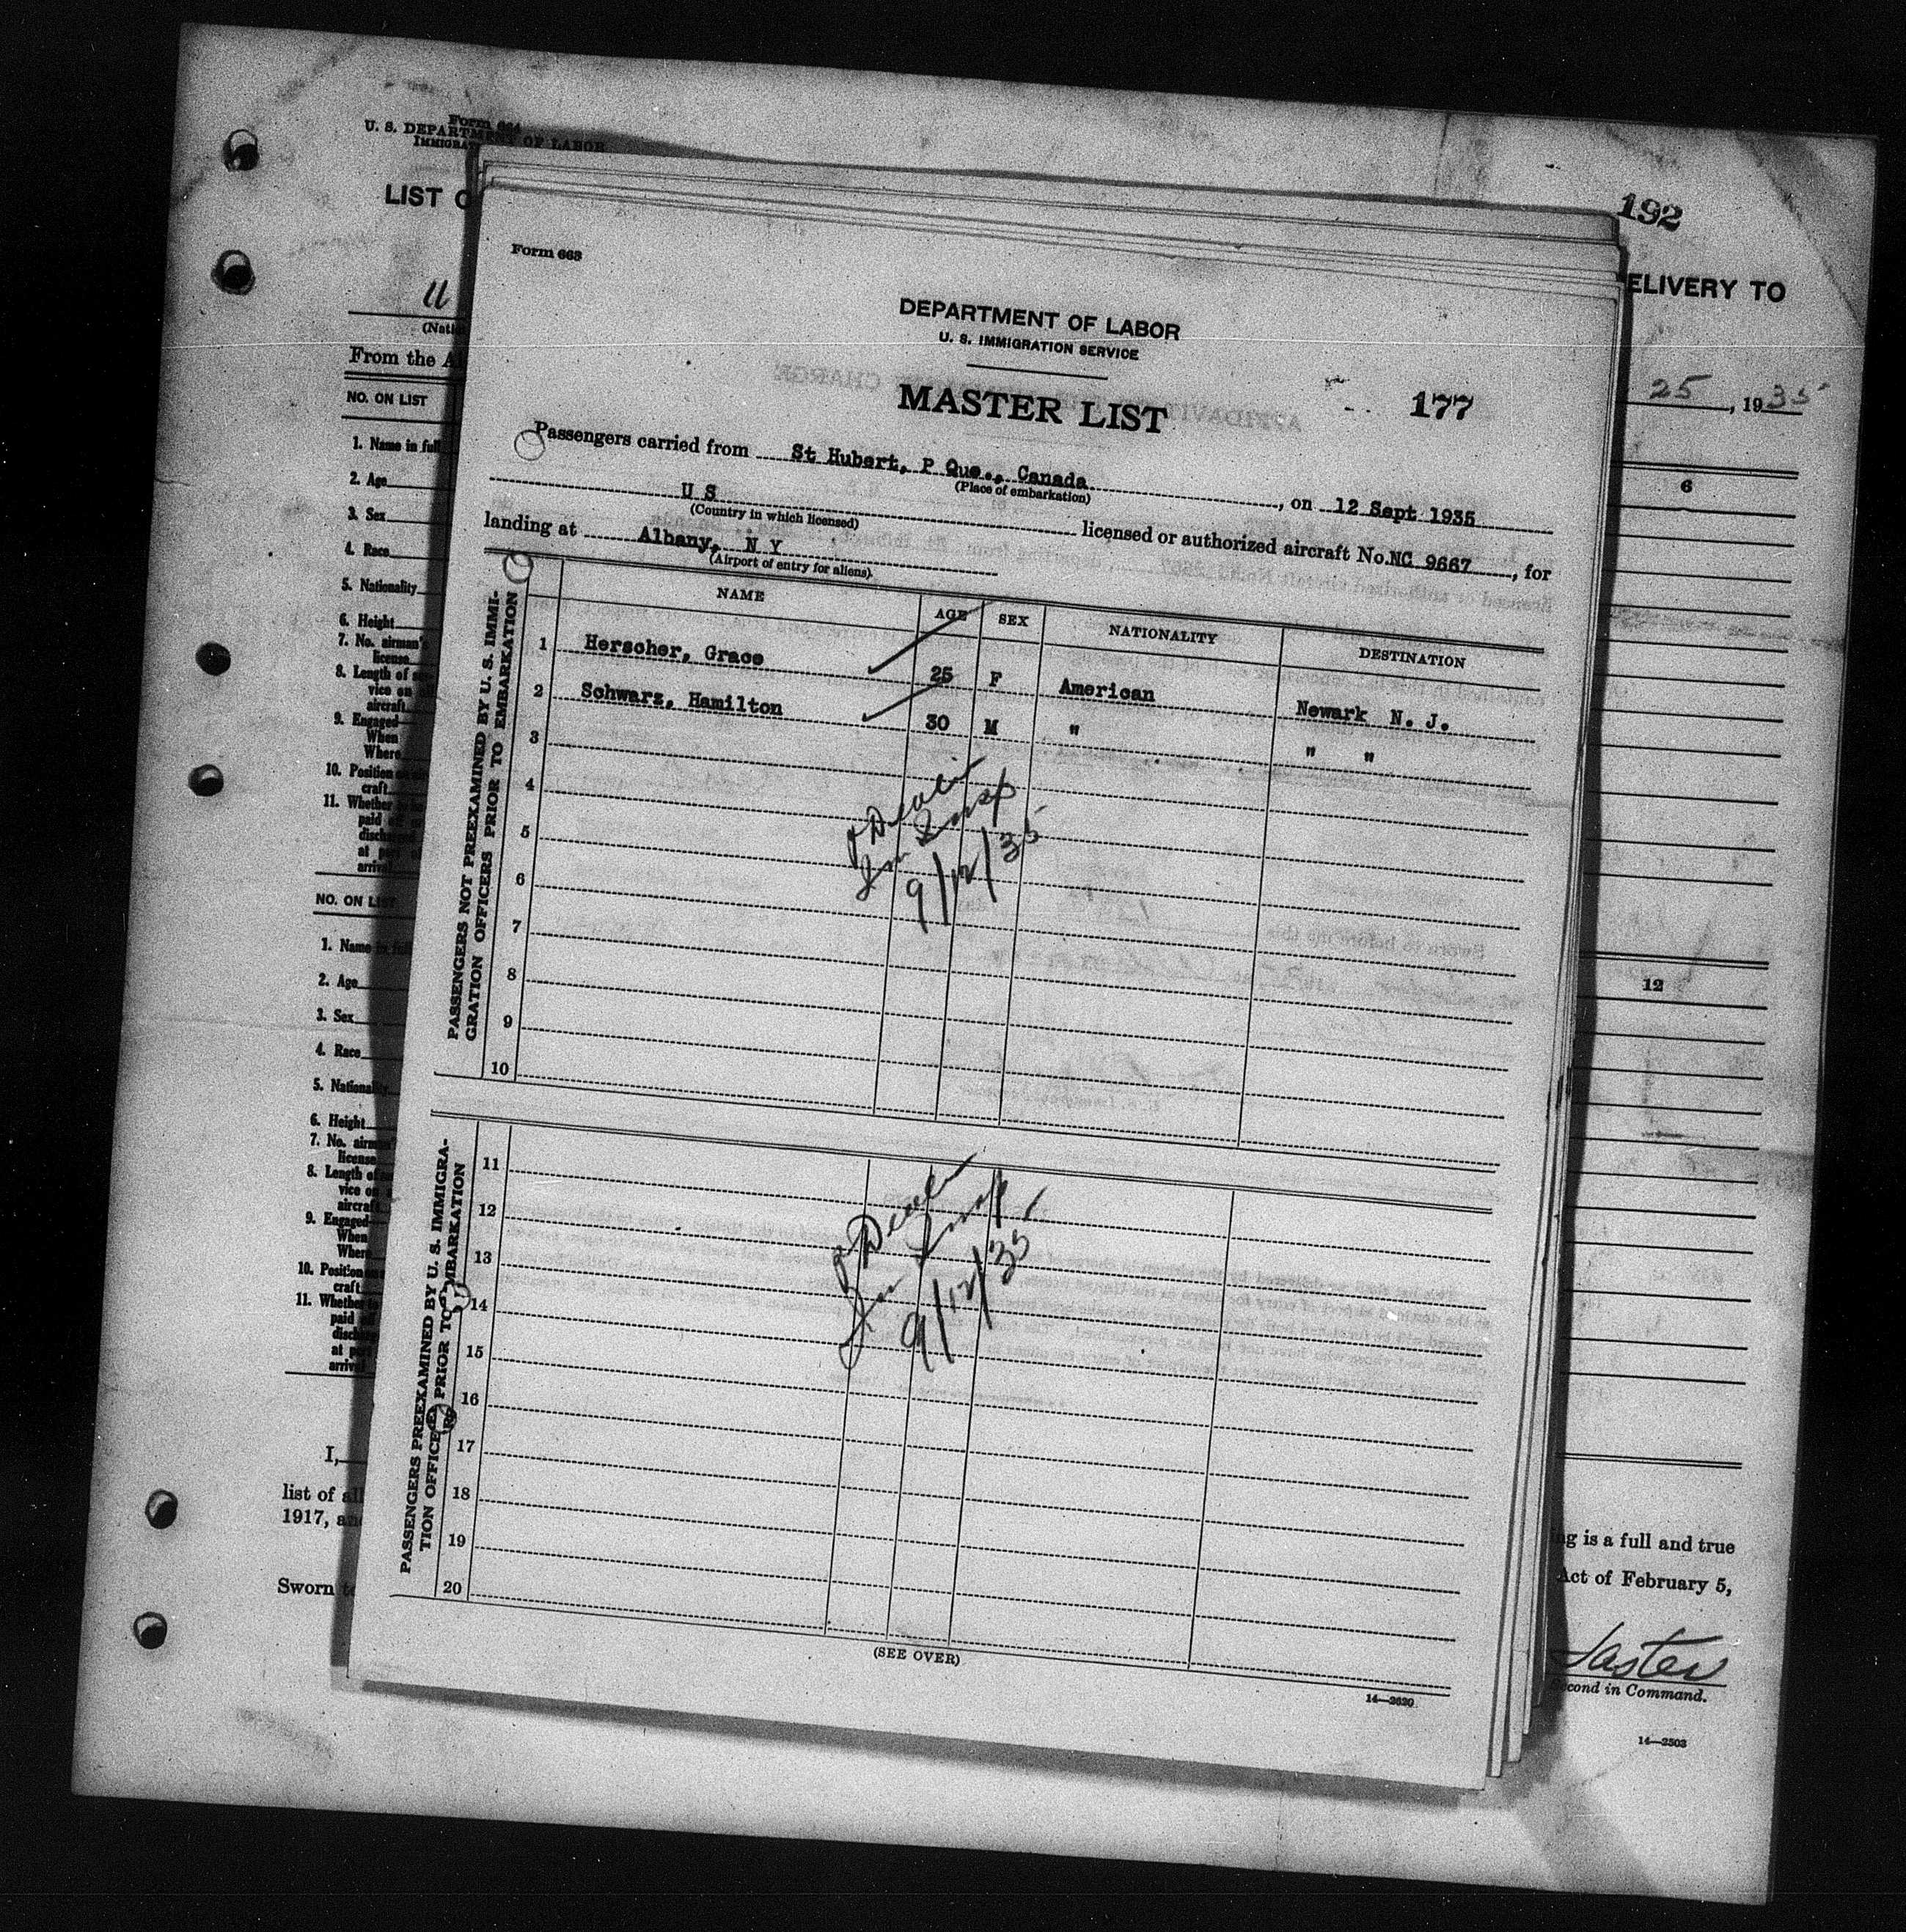 Form 664
U. S. DEPARTMENT OF LABOR
LIST
192
ELIVERY TO
From the
25, 1935
NO. ON LIST
1. Name in full
2. Age
3. Sex
4. Race
5. Nationality
6. Height
7. No. airman's
license
8. Length of
vice on
aircraft
9. Engaged
When
Where
10. Position
craft
11. Whether
paid
at
6
NO. ON LIST
1. Name
2. Age
3. Sex
4. Race
5.
6. Height
7. No.
license
8. Length of
vice on
aircraft
9. Engaged
When
Where
10. Position
craft
11. Whether
paid
at
12
I,
list of
1917,
Sworn
is a full and true
Act of February 5,
in Command.
14—2503
Form 663
DEPARTMENT OF LABOR
U. S. IMMIGRATION SERVICE
MASTER LIST
177
Passengers carried from St Hubert, P Que., Canada, on 12 Sept 1935
(Place of embarkation)
U S licensed or authorized aircraft No. NC 9667, for
(Country in which licensed)
landing at Albany, N Y
(Airport of entry for aliens)
PASSENGERS NOT PREEXAMINED BY U. S. IMMI-
GRATION OFFICERS PRIOR TO EMBARKATION
NAME AGE SEX NATIONALITY DESTINATION
1 Herscher, Grace 25 F American Newark N. J.
2 Schwarz, Hamilton 30 M " " "
3
4
5
6
7
8
9
10
Imm Insp
9/12/35
PASSENGERS PREEXAMINED BY U. S. IMMIGRA-
TION OFFICERS PRIOR TO EMBARKATION
11
12
13
14
15
16
17
18
19
20
Imm Insp
9/12/35
(SEE OVER)
14—2620